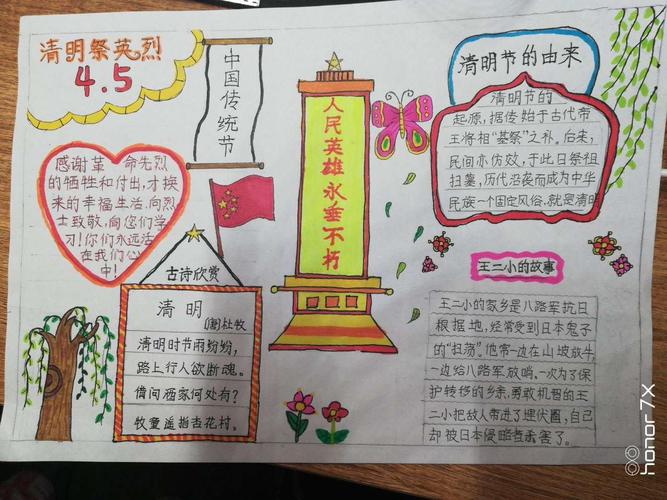 清明祭英烈
4.5
中国传统节
人民英雄永垂不朽
清明节的由来
清明节的
起源,据传始于古代帝
王将相“墓祭”之礼。后来,
民间亦仿效,于此日祭祖
扫墓,历代沿袭而成为中华
民族一个固定风俗。就是清明
感谢革命先烈
的牺牲和付出,才换
来的幸福生活,向烈
士致敬,向您们学
习!你们永远活
在我们心
中!
古诗欣赏
清明
(唐)杜牧
清明时节雨纷纷,
路上行人欲断魂。
借问酒家何处有?
牧童遥指杏花村。
王二小的故事
王二小的家乡是八路军抗日
根据地,经常受到日本鬼子
的“扫荡”。他常一边在山坡放牛,
一边给八路军放哨。一次为了保
护转移的乡亲,勇敢机智的王
二小把敌人带进了埋伏圈,自己
却被日本侵略者杀害了。
honor 7X